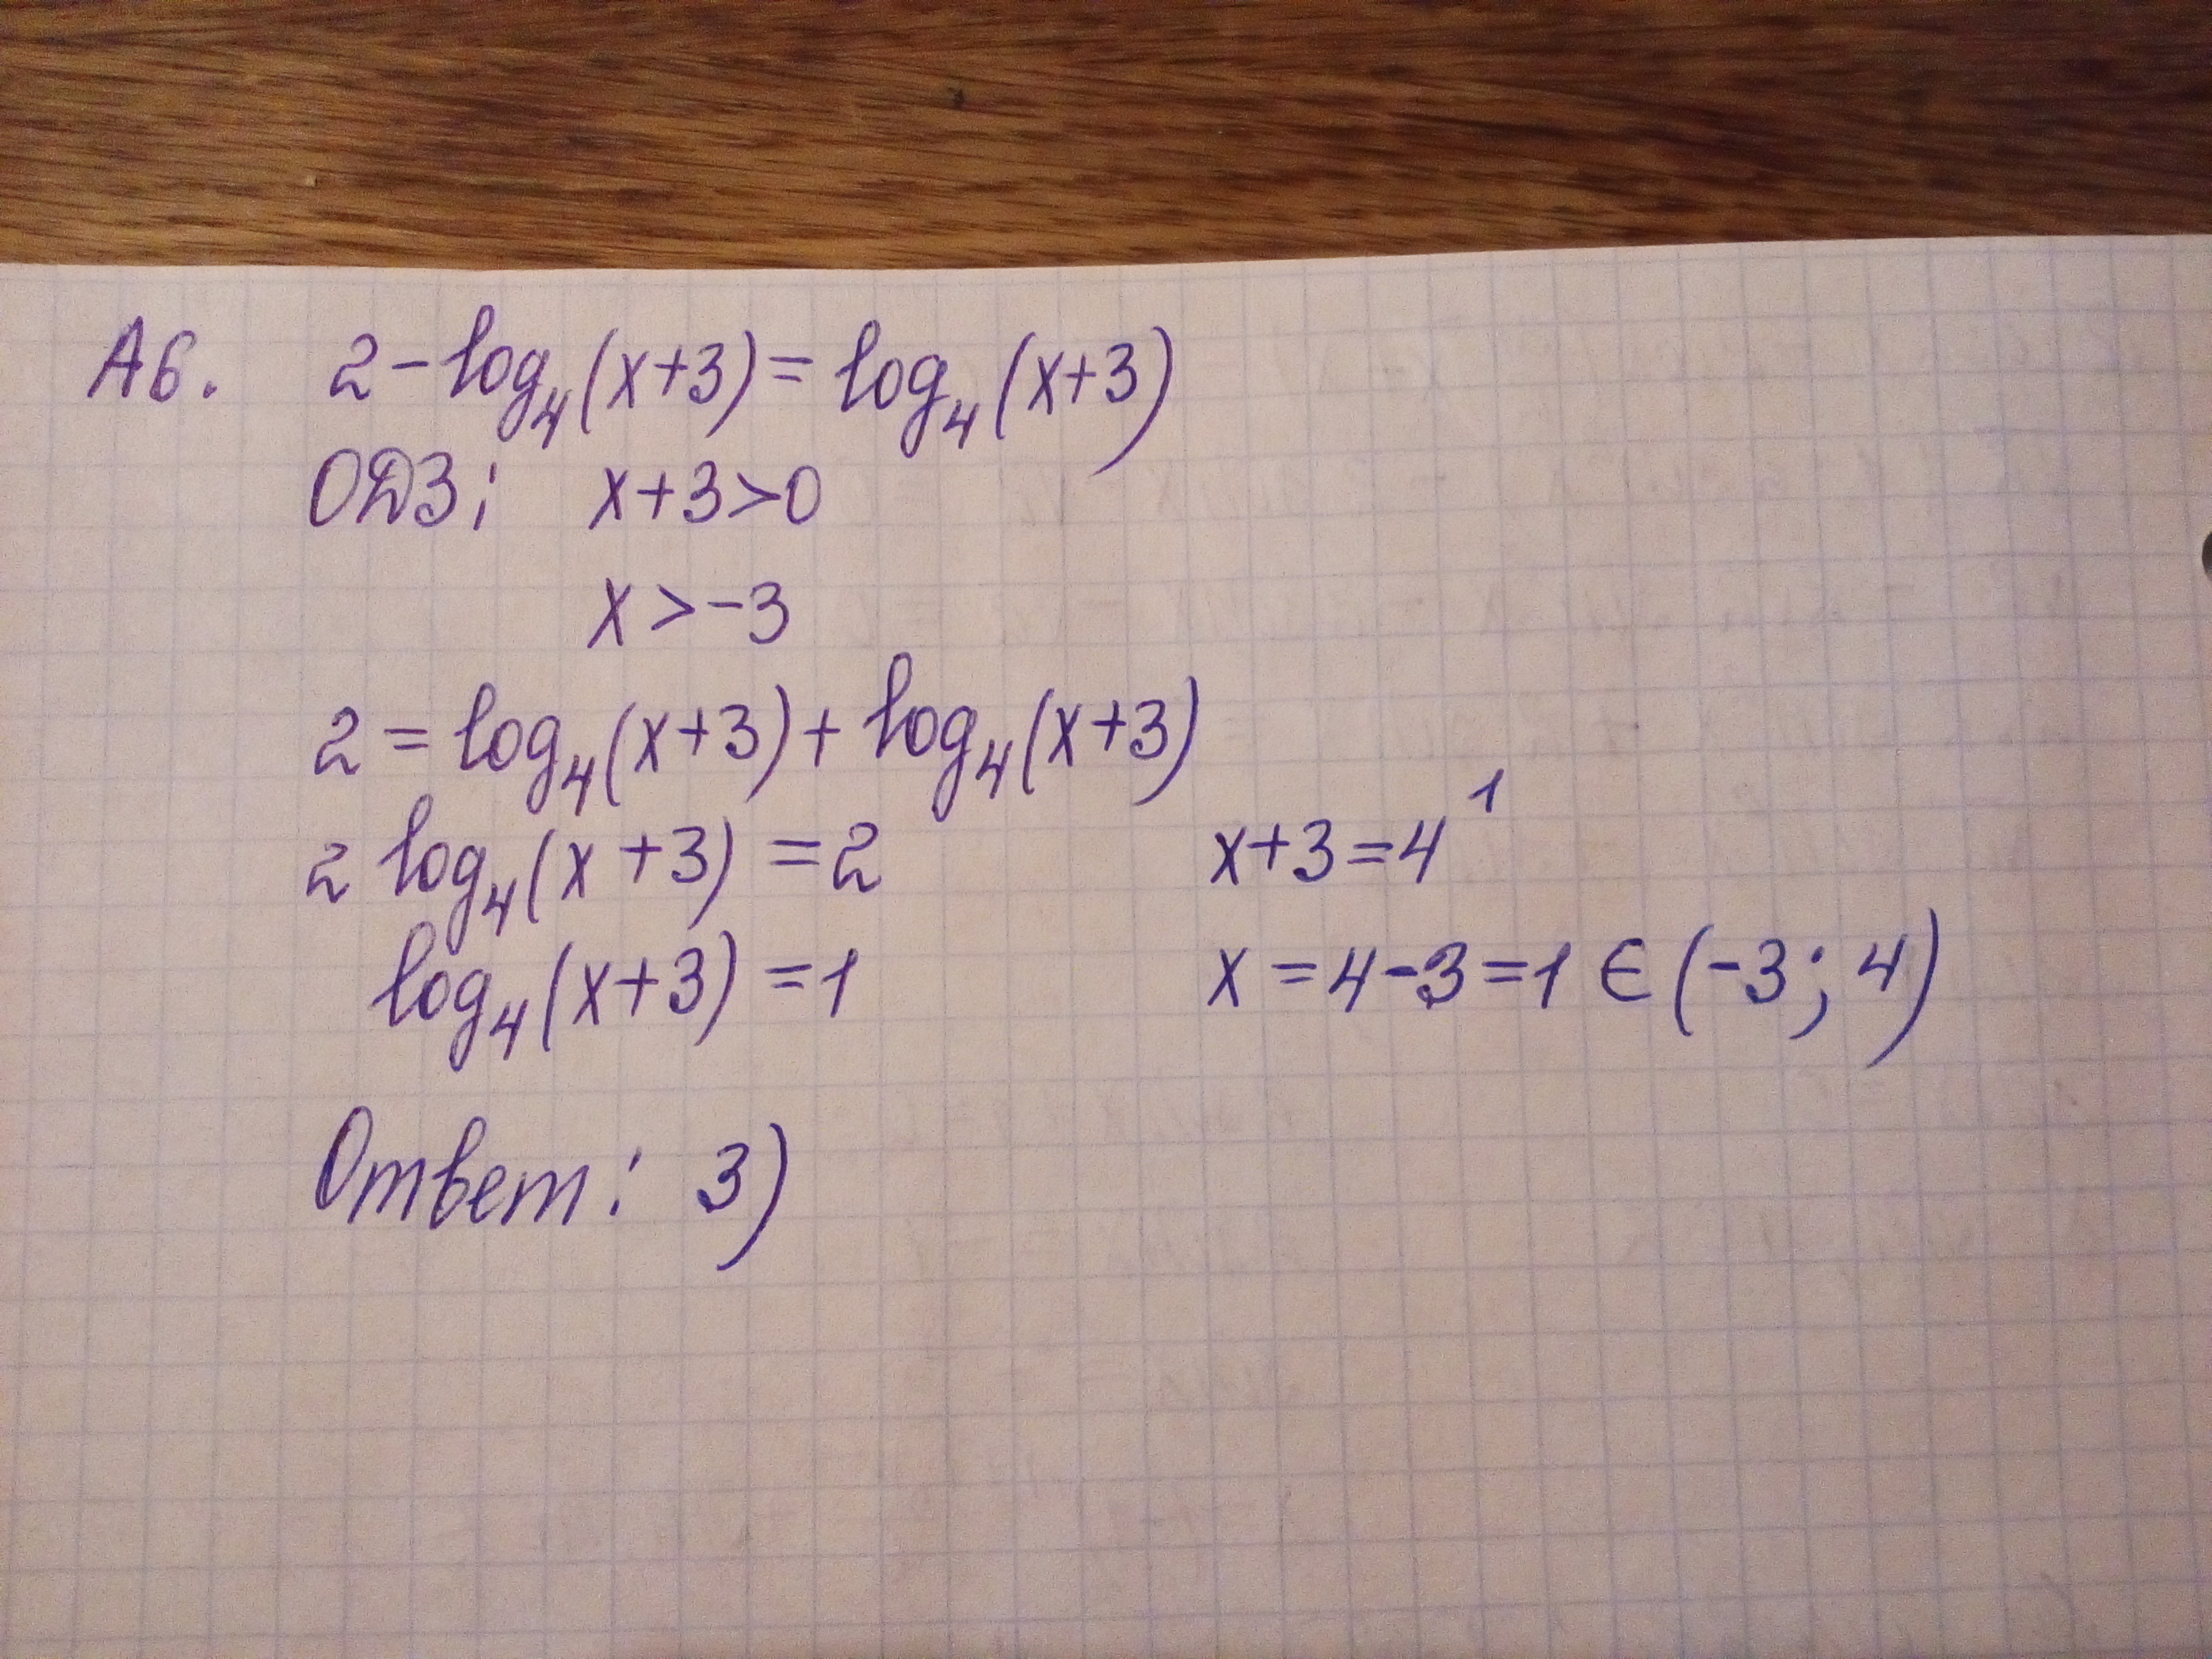 А6. 2-log₄(x+3)=log₄(x+3)
ОДЗ: x+3>0
x>-3
2=log₄(x+3)+log₄(x+3)
2 log₄(x+3)=2
log₄(x+3)=1
x+3=4¹
x=4-3=1∈(-3;4)
Ответ: 3)